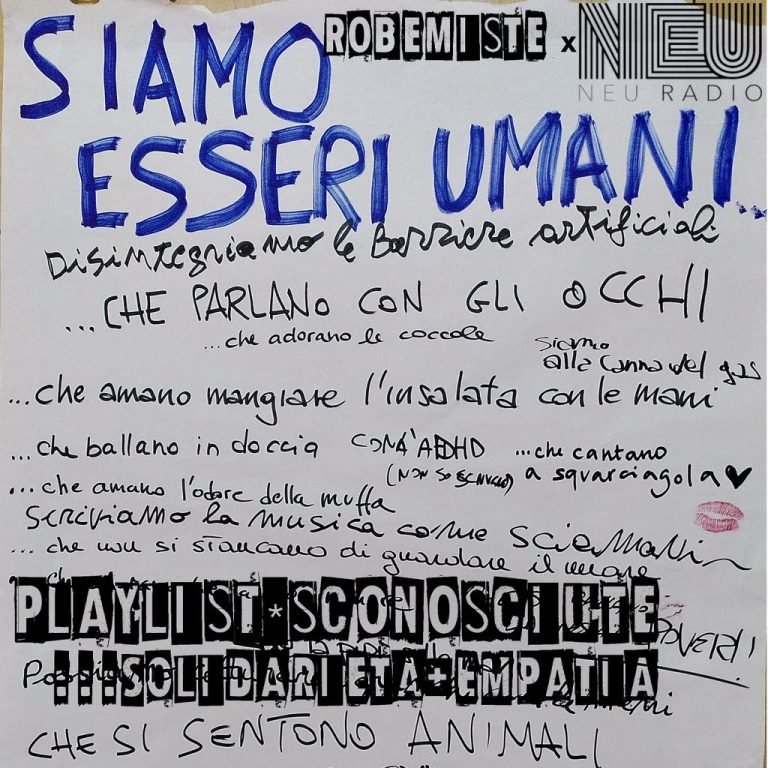 ROBEMISTE x NEU
NEU RADIO
SIAMO
ESSERI UMANI...
Disintegriamo le Barriere artificiali
...CHE PARLANO CON GLI OCCHI
...che adorano le coccole
siamo
alla canna del gas
...che amano mangiare l'insalata con le mani
...che ballano in doccia
COM'A
...che cantano
a squarciagola ♥
(NON SO
...che amano l'odore della muffa
scriviamo la musica come sciamani
...che non si stancano di guardare il mare
PLAYLIST*SCONOSCIUTE
POVERI!
!!!SOLIDARIETÀ+EMPATIA
CHE SI SENTONO ANIMALI